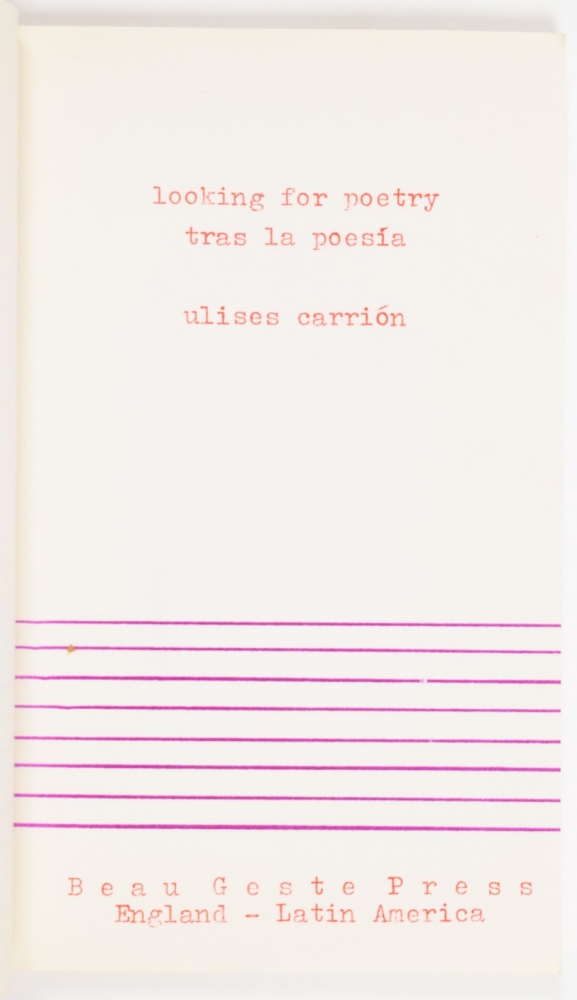 looking for poetry
tras la poesía
ulises carrión
Beau Geste Press
England - Latin America